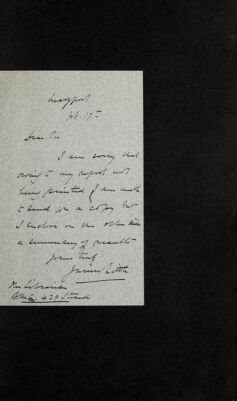 Liverpool
Feb. 17th
Dear Sir
I am sorry that
owing to my report not
being printed I am unable
to send you a copy but
I enclose on the other side
a summary of results
Yours truly
The Librarian
Strand